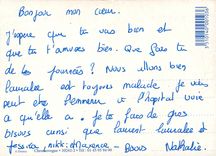 Bonjour mon cœur.
J'espère que tu vas bien et
que tu t'amuses bien. Que fais tu
de tes journées? Nous allons bien
Lauralee est toujours malade je vais
peut être l'emmener à l'hôpital voir
ce qu'elle a. Je te fais de gros
bisous ainsi que Laurent Lauralee et
Jessica, nikki, Maxence. Bisous Nathalie.